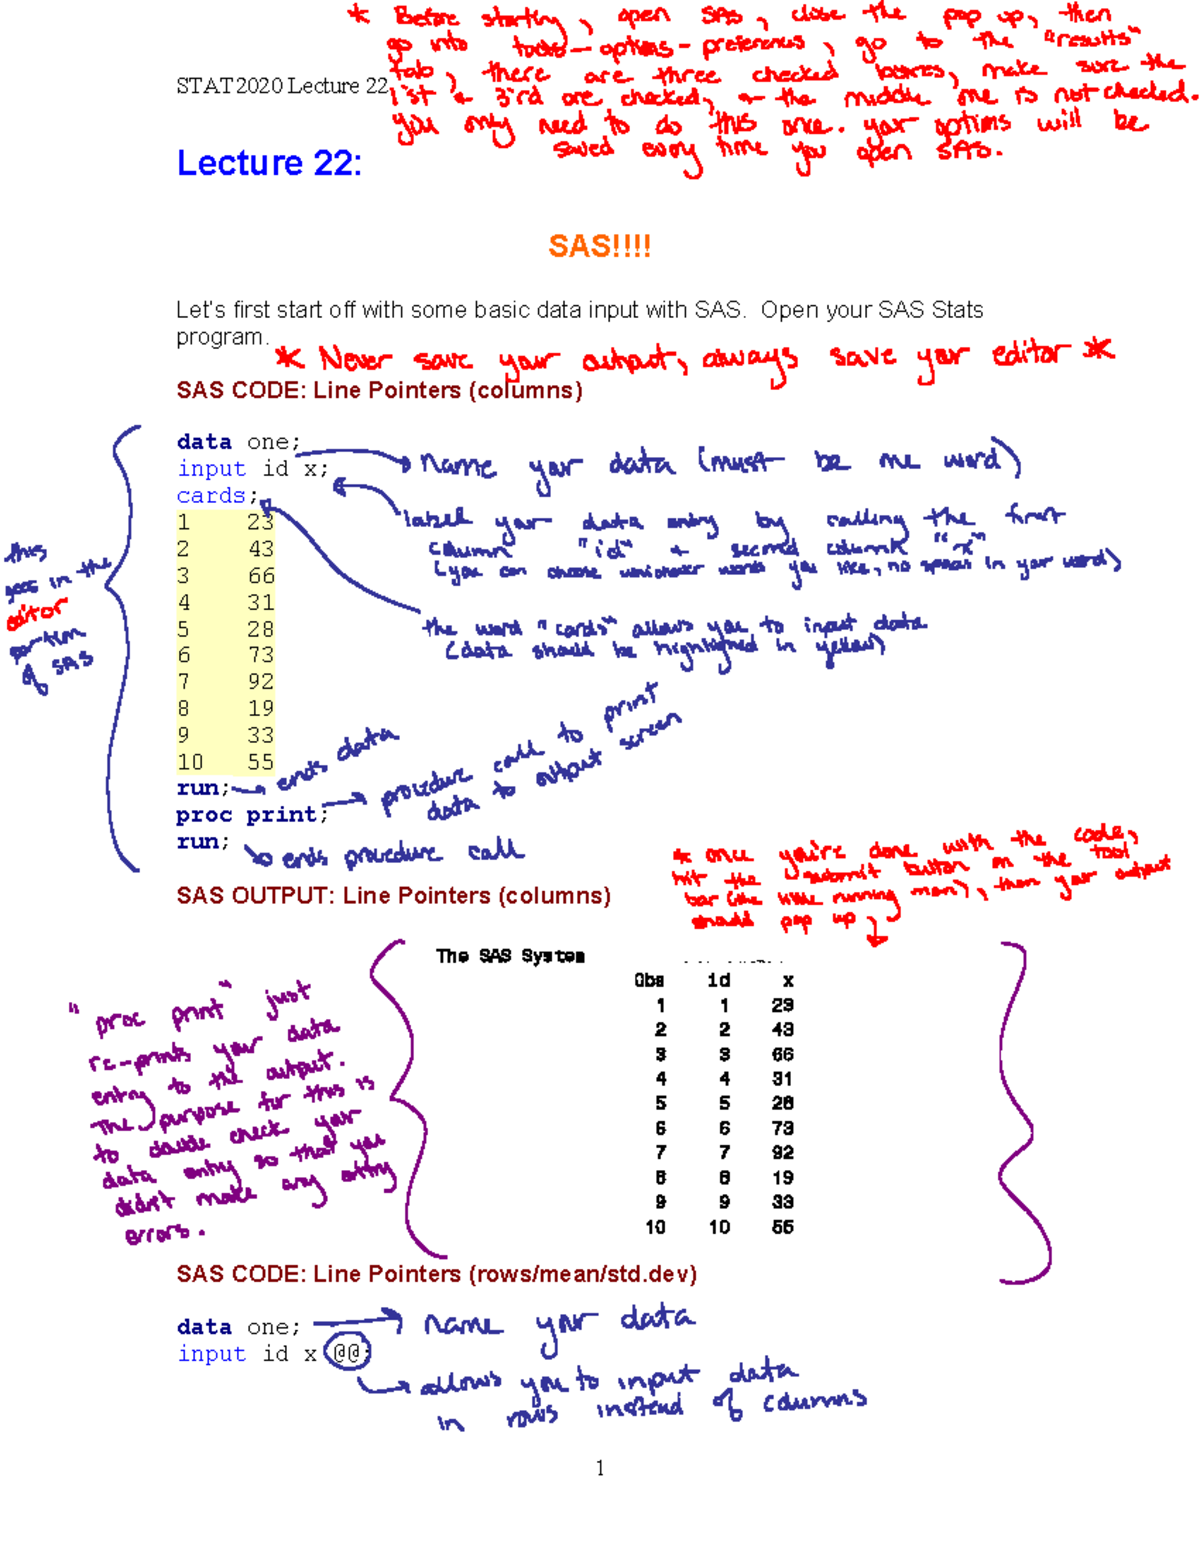 * Before starting, open SAS, close the pop up, then
go into tools - options - preferences, go to the "results"
tab, there are three checked boxes, make sure the
1'st & 3'rd are checked, & the middle one is not checked.
you only need to do this once. your options will be
saved every time you open SAS.
STAT2020 Lecture 22
Lecture 22:
SAS!!!!
Let's first start off with some basic data input with SAS.  Open your SAS Stats
program.
* Never save your output, always save your editor *
SAS CODE: Line Pointers (columns)
data one;
input id x;
cards;
1 23
2 43
3 66
4 31
5 28
6 73
7 92
8 19
9 33
10 55
run;
proc print;
run;
this
goes in the
editor
portion
of SAS
name your data (must be one word)
label your data entry by calling the first
column "id" & second column "x"
(you can choose whichever words you like, no spaces in your word)
the word "cards" allows you to input data
(data should be highlighted in yellow)
ends data
procedure call to print
data to output screen
ends procedure call
* once you're done with the code,
hit the submit button on the tool
bar (the little running man), then your output
should pop up
SAS OUTPUT: Line Pointers (columns)
The SAS System
Obs id x
1 1 23
2 2 43
3 3 66
4 4 31
5 5 28
6 6 73
7 7 92
8 8 19
9 9 33
10 10 55
"proc print" just
re-prints your data
entry to the output.
The purpose for this is
to double check your
data entry so that you
didn't make any entry
errors.
SAS CODE: Line Pointers (rows/mean/std.dev)
data one;
input id x @@;
name your data
allows you to input data
in rows instead of columns
1